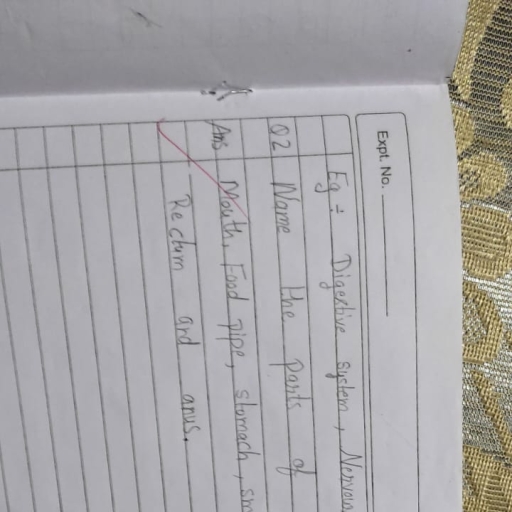 Expt. No.
Eg :- Digestive system, Nervous
Q2 Name the parts of
Ans Mouth, Food pipe, stomach, sm
Rectum and anus.